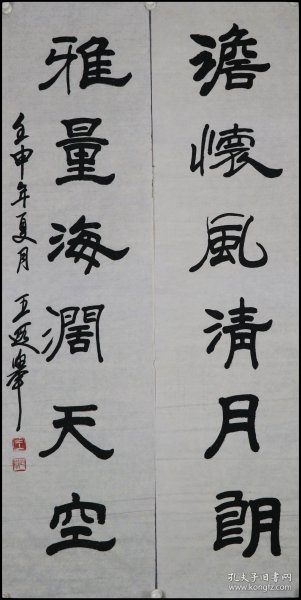 澹懷風清月朗
雅量海濶天空
壬申年夏月 王遐舉
孔夫子旧书网
www.kongfz.com